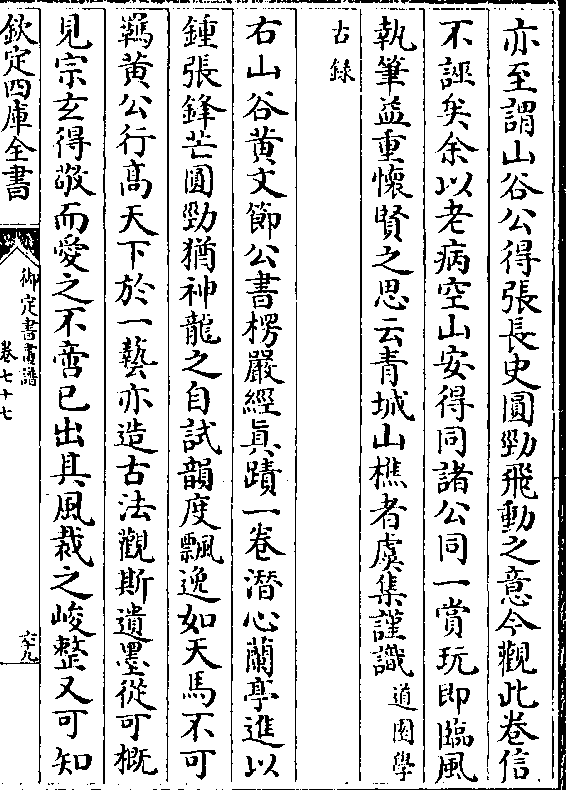 亦至謂山谷公得張長史圓勁飛動之意今觀此卷信
不誣矣余以老病空山安得同諸公同一賞玩即臨風
執筆益重懷賢之思云青城山樵者虞集謹識道園學
古錄
右山谷黄文節公書楞嚴經真蹟一卷潛心蘭亭進以
鍾張鋒芒圓勁猶神龍之自試韻度飄逸如天馬不可
羈黄公行高天下於一藝亦造古法觀斯遺墨從可概
見宗玄得敬而愛之不啻已出其風裁之峻整又可知
欽定四庫全書
御定書畫譜
卷七十七
六九